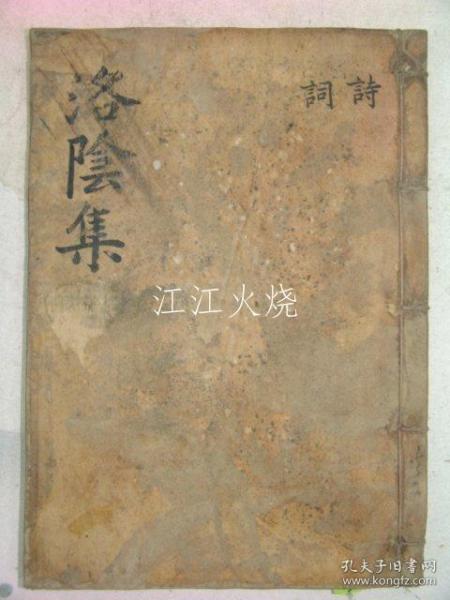 洛陰集
詩
詞
江江火烧
孔夫子旧书网
www.kongfz.com